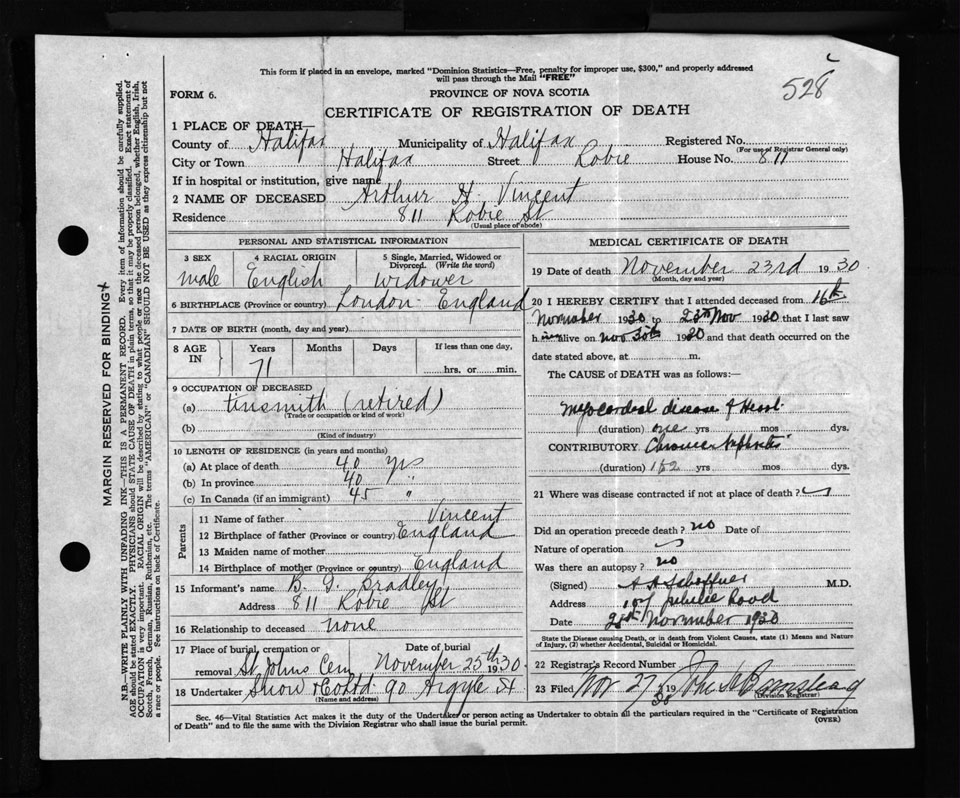 This form if placed in an envelope, marked "Dominion Statistics—Free, penalty for improper use, $300," and properly addressed
will pass through the Mail "FREE"
528
FORM 6.
PROVINCE OF NOVA SCOTIA
CERTIFICATE OF REGISTRATION OF DEATH
1 PLACE OF DEATH—
County of Halifax Municipality of Halifax Registered No.
(For use of Registrar General only)
City or Town Halifax Street Robie House No. 811
If in hospital or institution, give name
2 NAME OF DECEASED Arthur H. Vincent
Residence 811 Robie St
(Usual place of abode)
PERSONAL AND STATISTICAL INFORMATION
3 SEX 4 RACIAL ORIGIN 5 Single, Married, Widowed or
Divorced. (Write the word)
male English widower
6 BIRTHPLACE (Province or country) London England
7 DATE OF BIRTH (month, day and year)
8 AGE IN Years Months Days If less than one day,
71 hrs. or min.
9 OCCUPATION OF DECEASED
(a) tinsmith (retired)
(Trade or occupation or kind of work)
(b)
(Kind of industry)
10 LENGTH OF RESIDENCE (in years and months)
(a) At place of death 40 yrs
(b) In province 40 "
(c) In Canada (if an immigrant) 45 "
Parents
11 Name of father Vincent
12 Birthplace of father (Province or country) England
13 Maiden name of mother
14 Birthplace of mother (Province or country) England
15 Informant's name B. G. Bradley
Address 811 Robie St
16 Relationship to deceased none
17 Place of burial, cremation or Date of burial
removal St Johns Cem November 25th 1930
18 Undertaker Snow & Co Ltd 90 Argyle St
(Name and address)
MEDICAL CERTIFICATE OF DEATH
19 Date of death November 23rd 1930
(Month, day and year)
20 I HEREBY CERTIFY that I attended deceased from 16th
November 1930 to 23rd Nov 1930 that I last saw
him alive on Nov 1930 and that death occurred on the
date stated above, at m.
The CAUSE of DEATH was as follows:—
Myocardial disease of Heart
(duration) one yrs mos dys.
CONTRIBUTORY Chronic Nephritis
(duration) yrs mos dys.
21 Where was disease contracted if not at place of death?
Did an operation precede death? no Date of
Nature of operation
Was there an autopsy? no
(Signed) M.D.
Address Jubilee Road
Date November 1930
State the Disease causing Death, or in death from Violent Causes, state (1) Means and Nature
of Injury, (2) whether Accidental, Suicidal or Homicidal.
22 Registrar's Record Number
23 Filed Nov 27 1930
(Division Registrar)
Sec. 46—Vital Statistics Act makes it the duty of the Undertaker or person acting as Undertaker to obtain all the particulars required in the "Certificate of Registration
of Death" and to file the same with the Division Registrar who shall issue the burial permit.
(OVER)
MARGIN RESERVED FOR BINDING
N.B.—WRITE PLAINLY WITH UNFADING INK—THIS IS A PERMANENT RECORD. Every item of information should be carefully supplied.
AGE should be stated EXACTLY. PHYSICIANS should STATE CAUSE OF DEATH in plain terms, so that it may be properly classified. Exact statement of
OCCUPATION is very important. RACIAL ORIGIN will be described by stating to what people or race the deceased person belonged, whether English, Irish,
Scotch, French, German, Russian, Ruthenian, etc. The terms "AMERICAN" or "CANADIAN" SHOULD NOT BE USED as they express citizenship but not
a race or people. See instructions on back of Certificate.